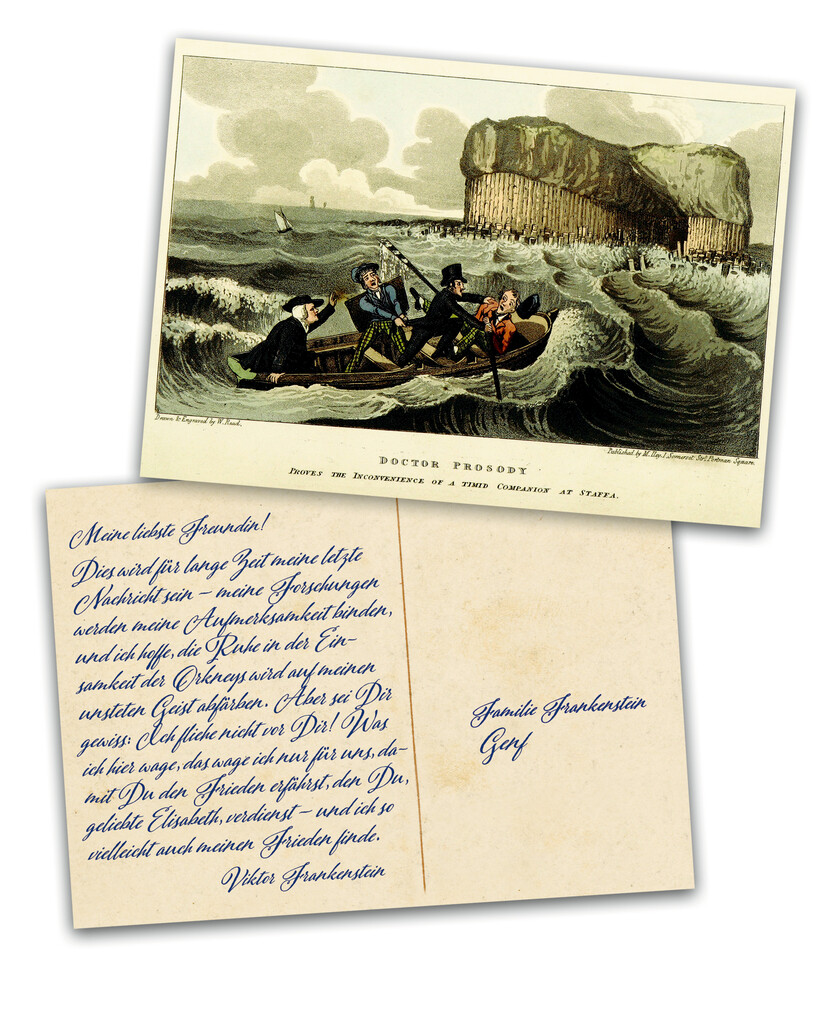 Drawn & Engraved by W. Read.
Published by M. Iley, 1, Somerset Str.t Portman Square.
DOCTOR PROSODY
PROVES THE INCONVENIENCE OF A TIMID COMPANION AT STAFFA.
Meine liebste Freundin!
Dies wird für lange Zeit meine letzte
Nachricht sein – meine Forschungen
werden meine Aufmerksamkeit binden,
und ich hoffe, die Ruhe in der Ein-
samkeit der Orkneys wird auf meinen
unsteten Geist abfärben. Aber sei Dir
gewiss: Ich fliehe nicht vor Dir! Was
ich hier wage, das wage ich nur für uns, da-
mit Du den Frieden erfährst, den Du,
geliebte Elisabeth, verdienst – und ich so
vielleicht auch meinen Frieden finde.
Viktor Frankenstein
Familie Frankenstein
Genf